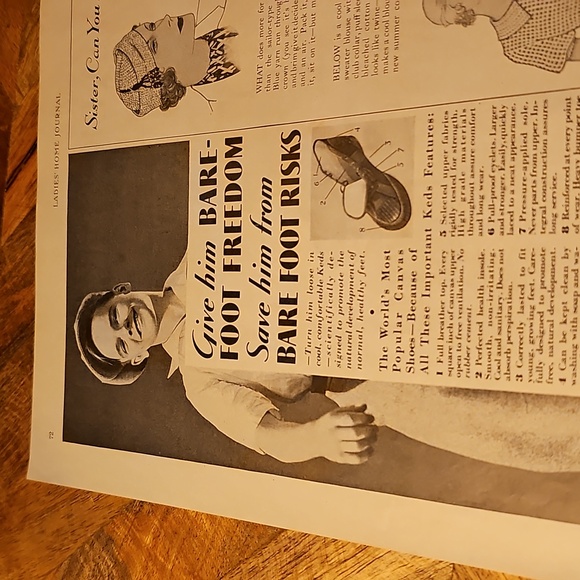 LADIES' HOME JOURNAL
72
Sister, Can You
WHAT does more for
than the sailor-type
Blue yarn run through
crown (you see it's
and bring it decided
and an air. Pack it,
it, sit on it—but
BELOW is a cool
sweater blouse wit
club collar, puff slee
bleached cotton
looks like twine
makes a cool blou
new summer co
Give him BARE-
FOOT FREEDOM
Save him from
BARE FOOT RISKS
—Turn him loose in
cool, comfortable Keds
—scientifically de-
signed to promote the
natural development of
normal, healthy feet.
The World's Most
Popular Canvas
Shoes—Because of
All These Important Keds Features:
1 Full breather top. Every
square inch of canvas upper
open to free ventilation. No
rubber cement.
2 Perfected health insole.
Smooth, non-irritating.
Cool and sanitary. Does not
absorb perspiration.
3 Correctly lasted to fit
young, growing feet. Care-
fully designed to promote
free, natural development.
4 Can be kept clean by
washing with soap and wa-
5 Selected upper fabrics
rigidly tested for strength.
High grade materials
throughout assure comfort
and long wear.
6 Pull-proof eyelets. Larger
and stronger. Easily, quickly
laced to a neat appearance.
7 Pressure-applied sole.
Never parts from upper. In-
tegral construction assures
long service.
8 Reinforced at every point